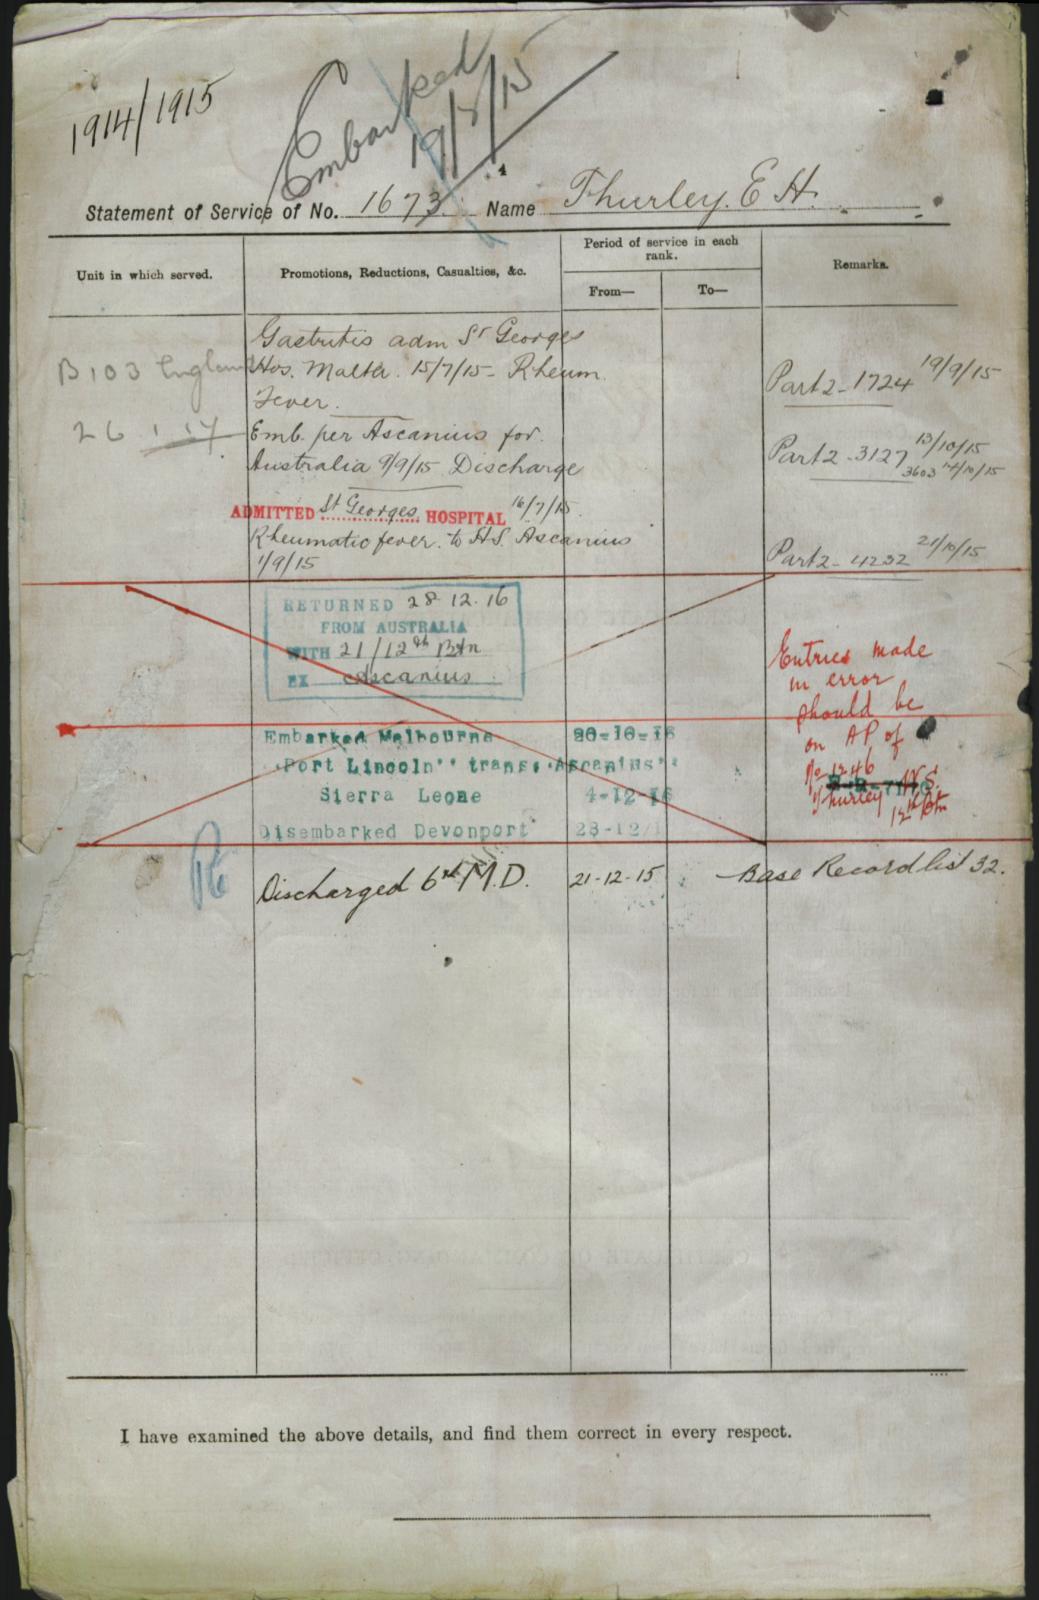 1914/1915
Embarked
19/ /15
Statement of Service of No. 1673 Name Thurley. E H.
Unit in which served.
Promotions, Reductions, Casualties, &c.
Period of service in each rank.
From—
To—
Remarks.
Gastritis adm St Georges
B103 England Hos. Malta. 15/7/15 - Rheum
Fever.
Part 2 - 1724 19/9/15
26 1 17 Emb. per Ascanius for
Australia 9/9/15 Discharge
Part 2 - 3127 13/10/15
3603 14/10/15
ADMITTED St Georges HOSPITAL 16/7/15
Rheumatic fever. to H.S. Ascanius
1/9/15
Part 2 - 4232 21/10/15
RETURNED 28.12.16
FROM AUSTRALIA
WITH 21/12th Btn
EX Ascanius
Entries made
in error
should be
on AP of
No 1246
Thurley W.S.
12th Btn
Embarked Melbourne 20-10-16
"Port Lincoln" trans. "Ascanius"
Sierra Leone 4-12-16
Disembarked Devonport 28-12/1
Discharged 6th M.D. 21-12-15 Base Record list 32.
I have examined the above details, and find them correct in every respect.